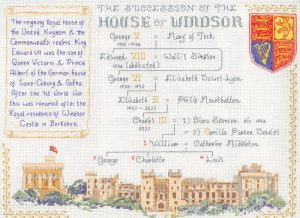 THE SUCCESSION OF THE
HOUSE OF WINDSOR
The reigning Royal house of
the United Kingdom & the
Commonwealth realms. King
Edward VII was the son of
Queen Victoria & Prince
Albert of the German house
of Saxe-Coburg & Gotha.
After the 1st World War
this was renamed after the
Royal residence of Windsor
Castle in Berkshire.
George V = Mary of Teck
1910 - 1936
Edward VIII = Wallis Simpson
1936 (abdicated)
George VI = Elizabeth Bowes-Lyon
1936 - 1952
Elizabeth II = Philip Mountbatten
1952 - 2022
Charles III = 1) Diana Spencer div. 1996
2022 2) Camilla Parker Bowles
William = Catherine Middleton
George Charlotte Louis